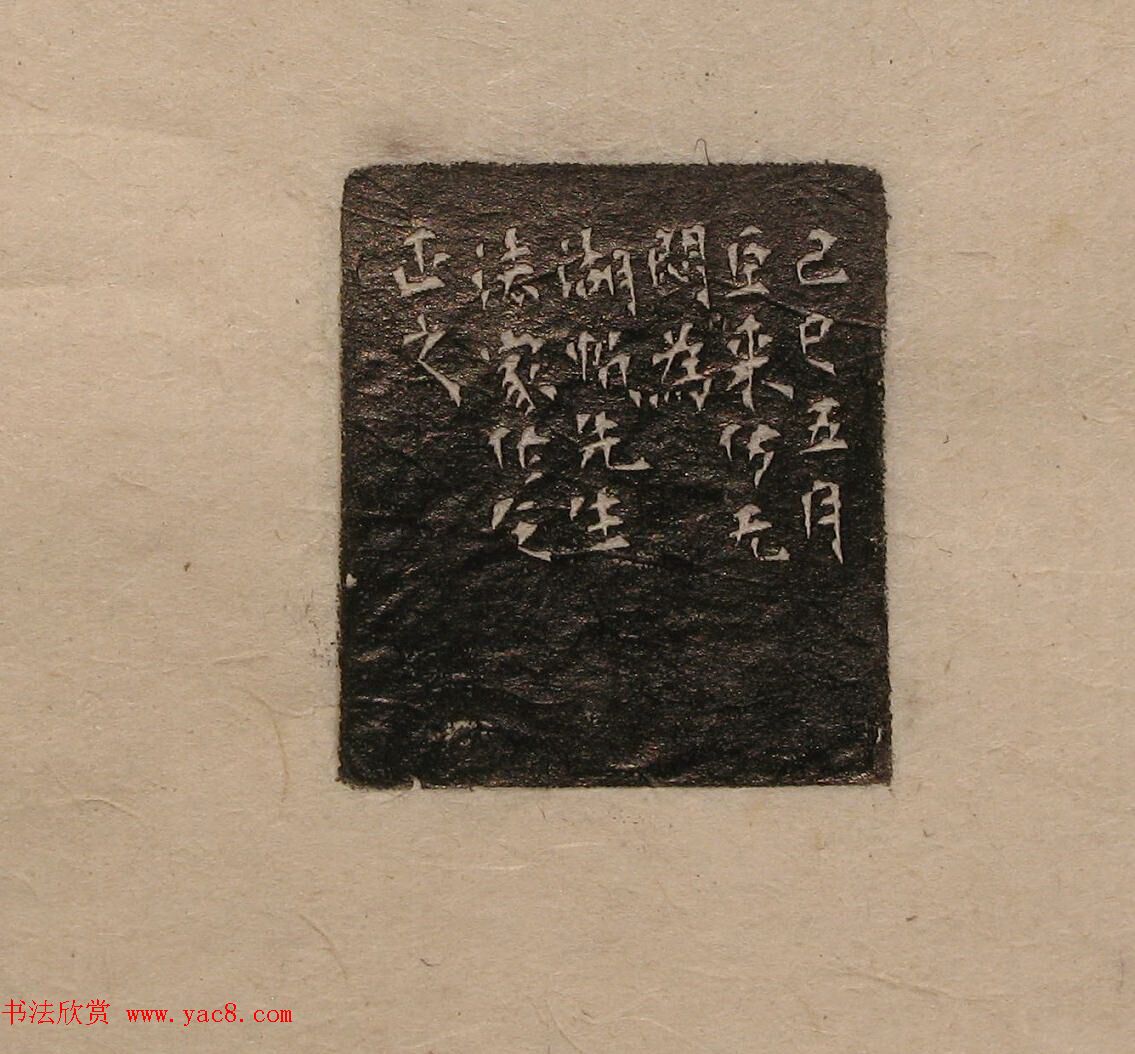 己巳五月
巨来仿元
為
湖帆先生
法家
正之
书法欣赏 www.yac8.com